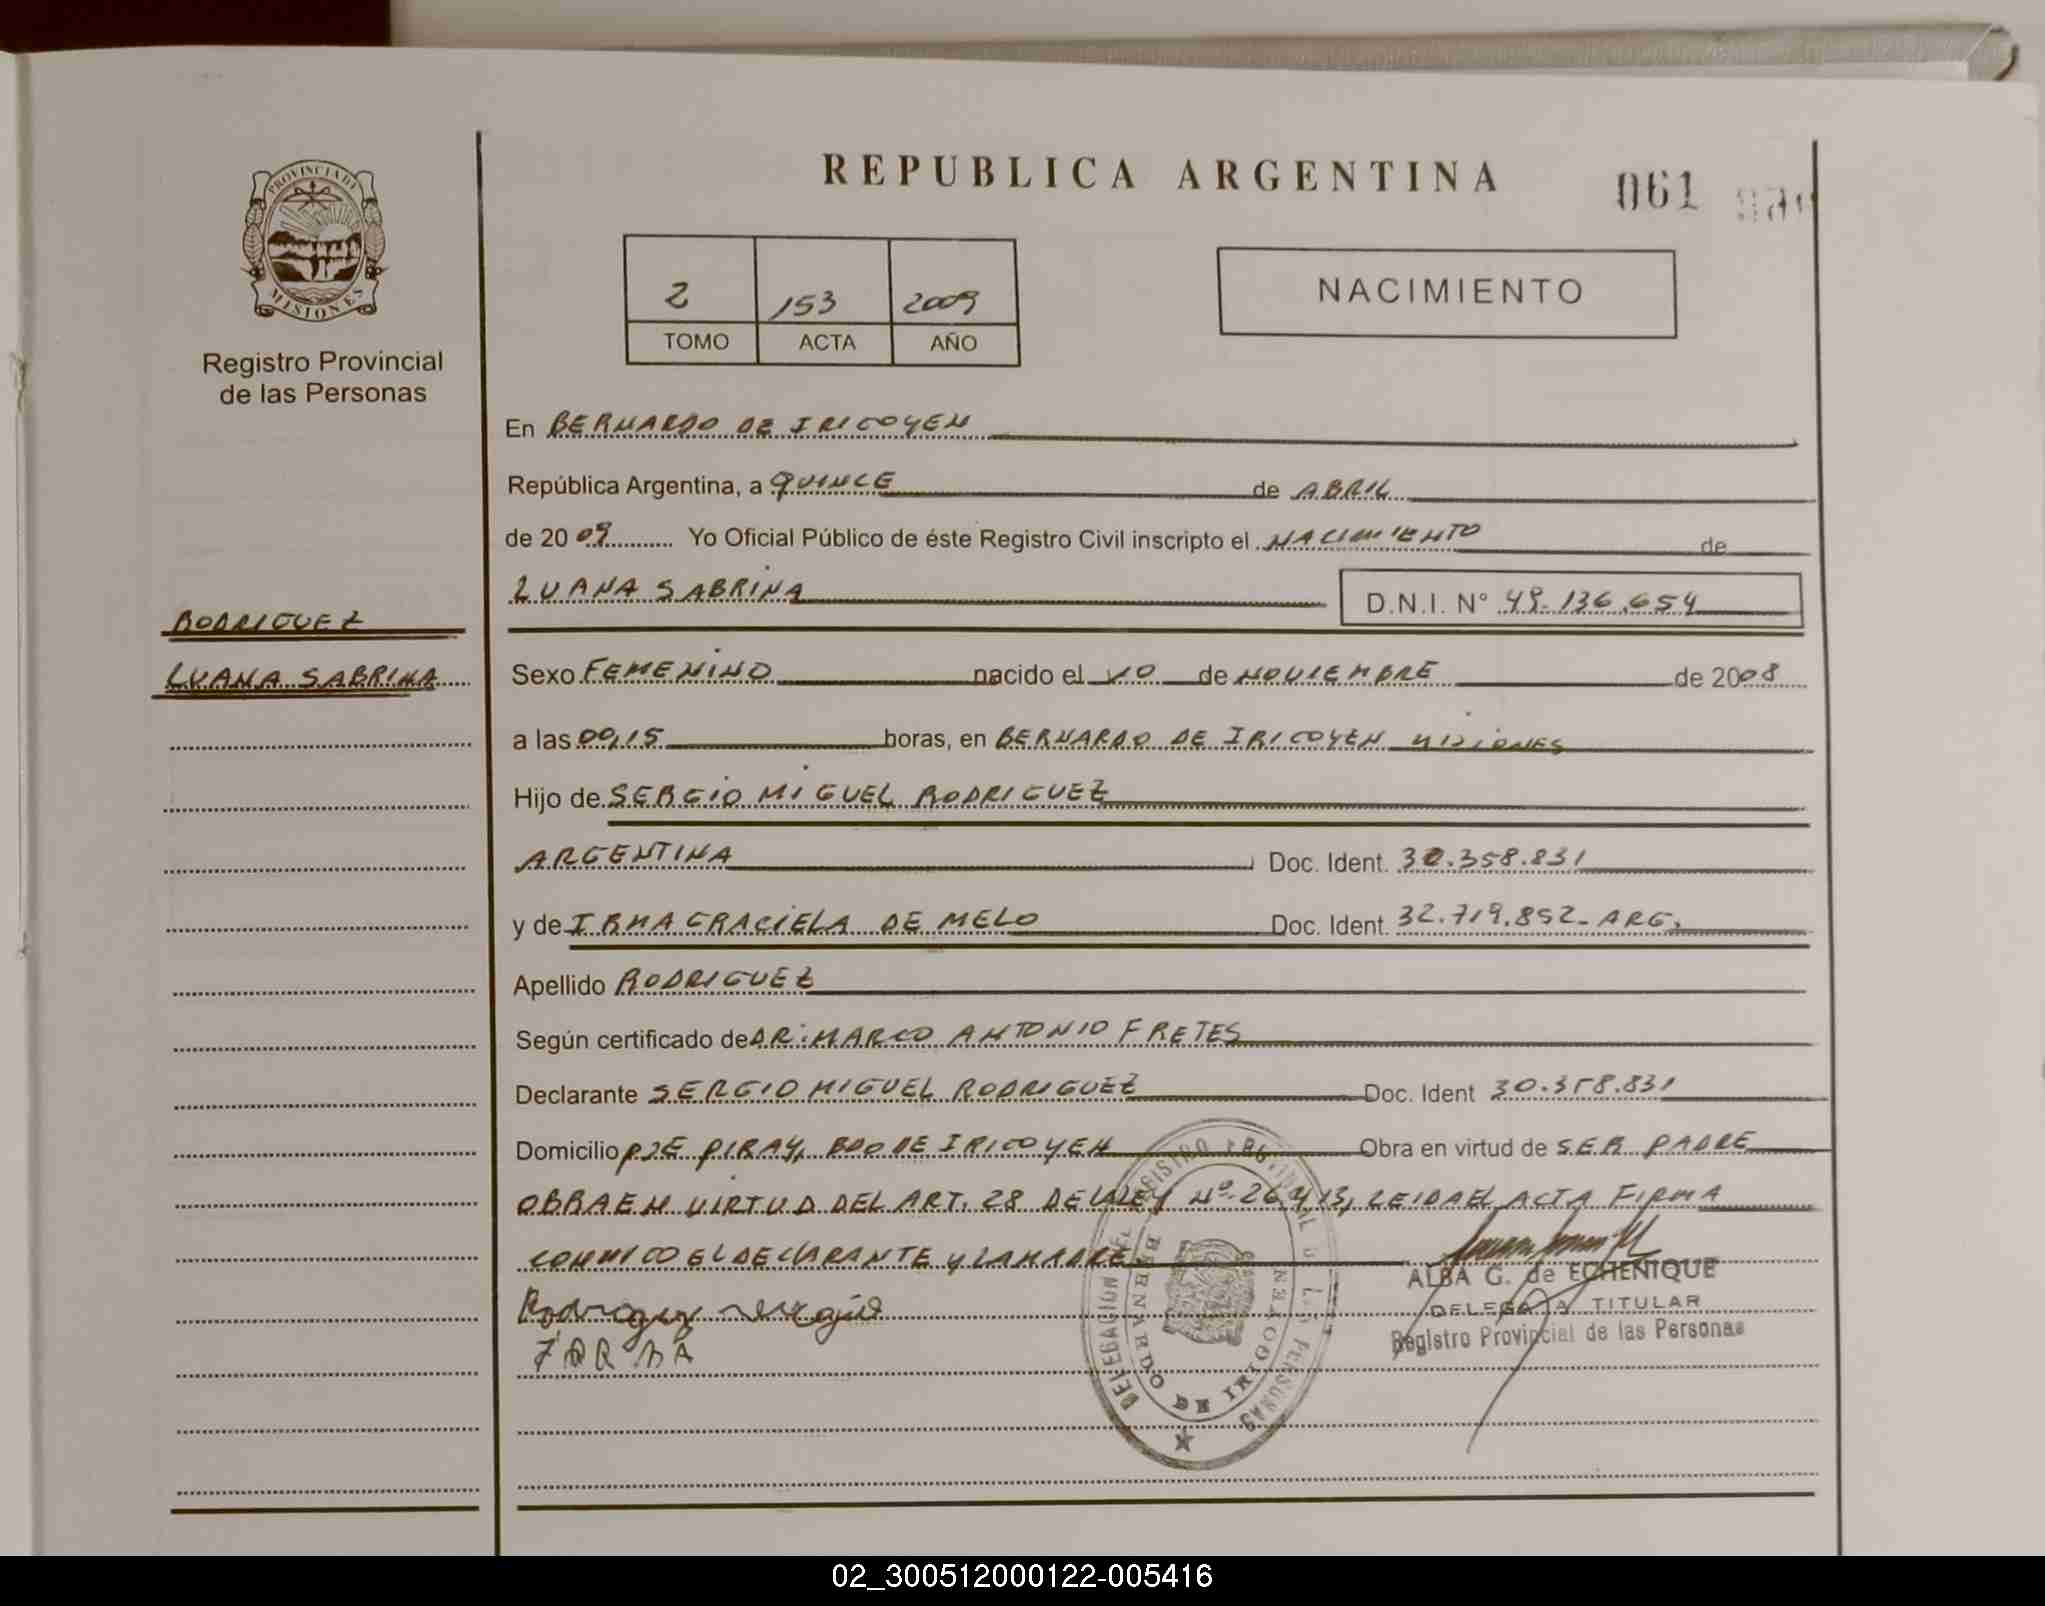 REPUBLICA ARGENTINA
061
PROVINCIA DE
MISIONES
Registro Provincial
de las Personas
2 153 2009
TOMO ACTA AÑO
NACIMIENTO
En BERNARDO DE IRIGOYEN
República Argentina, a QUINCE de ABRIL
de 2009 Yo Oficial Público de éste Registro Civil inscripto el NACIMIENTO de
LUANA SABRINA D.N.I. N° 49.136.654
RODRIGUEZ
LUANA SABRINA
Sexo FEMENINO nacido el 10 de NOVIEMBRE de 2008
a las 00,15 horas, en BERNARDO DE IRIGOYEN MISIONES
Hijo de SERGIO MIGUEL RODRIGUEZ
ARGENTINA Doc. Ident. 30.358.831
y de IRMA GRACIELA DE MELO Doc. Ident. 32.719.852- ARG.
Apellido RODRIGUEZ
Según certificado de DR: MARCO ANTONIO FRETES
Declarante SERGIO MIGUEL RODRIGUEZ Doc. Ident 30.358.831
Domicilio PJE PIRAY, BDO DE IRIGOYEN Obra en virtud de SER PADRE
OBRA EN VIRTUD DEL ART. 28 DE LA LEY Nº 26.413, LEIDA EL ACTA FIRMA
CONMIGO EL DECLARANTE Y LA MADRE
Rodriguez Sergio
DELEGACION DEL REGISTRO PROVINCIAL DE LAS PERSONAS
BERNARDO DE IRIGOYEN
ALBA G. de ECHENIQUE
DELEGADA TITULAR
Registro Provincial de las Personas
02_300512000122-005416